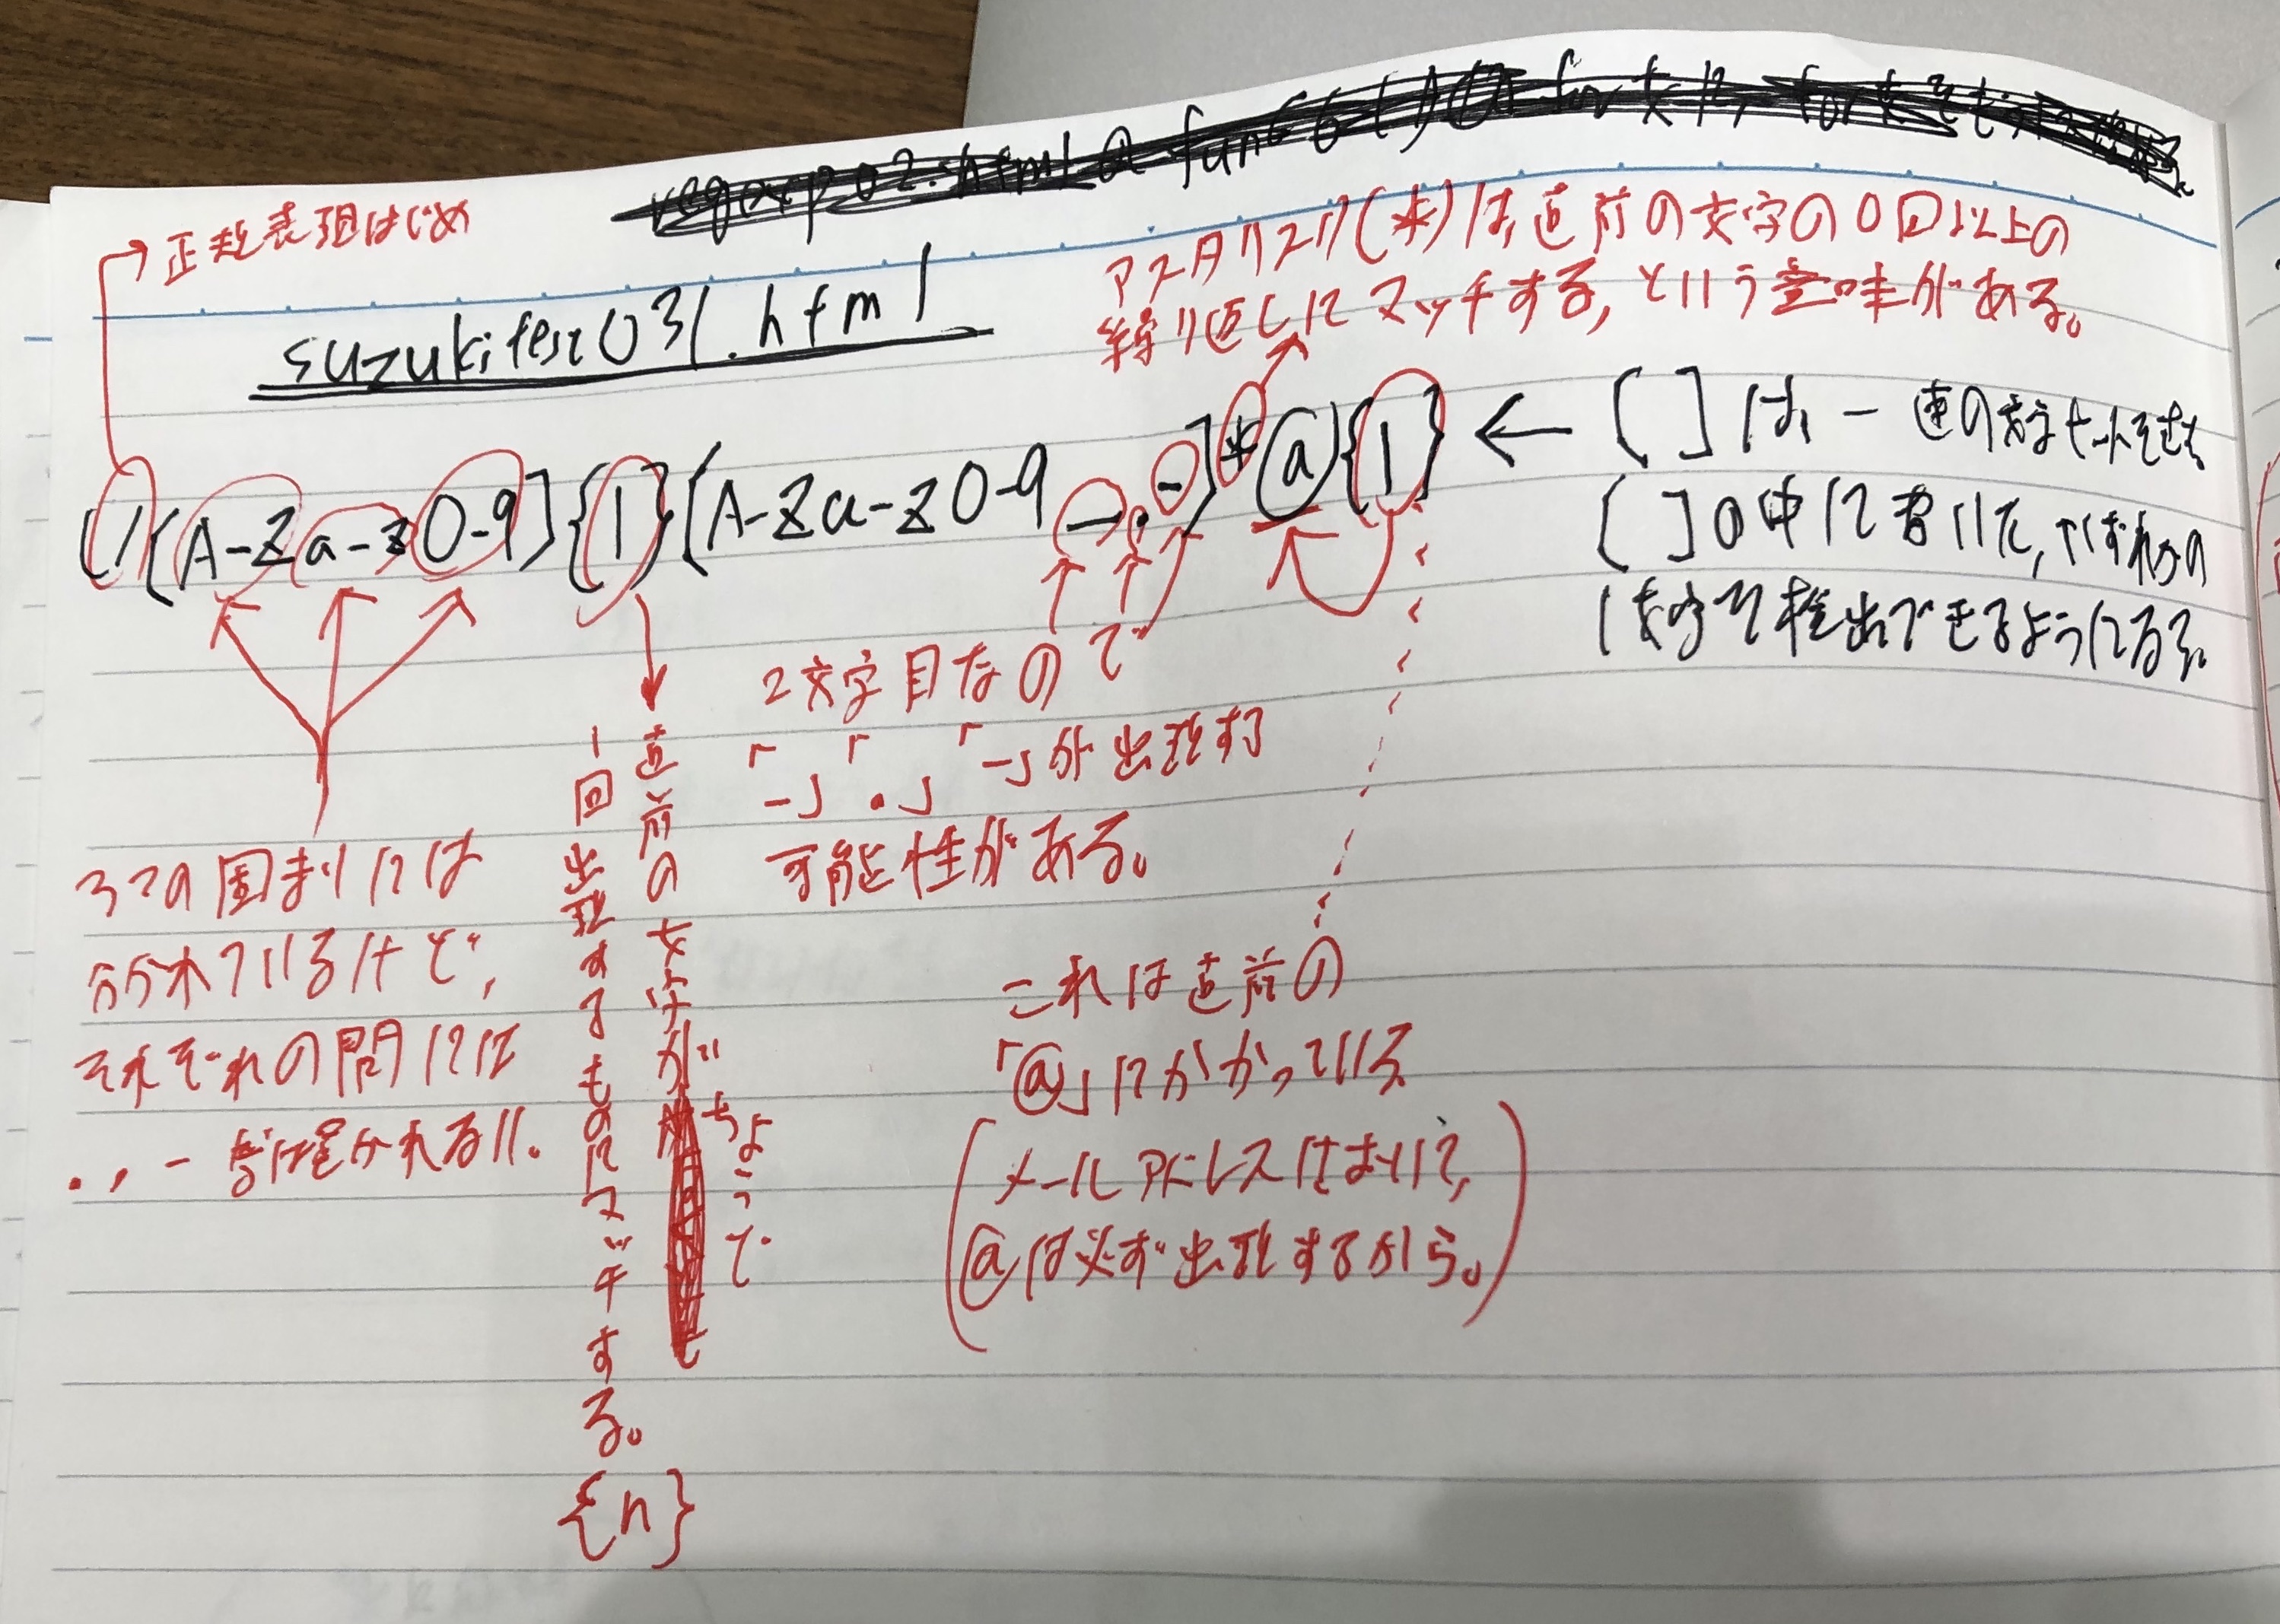 正規表現はじめ
アスタリスク(*)は、直前の文字の0回以上の
繰り返しにマッチする,という意味がある。
suzukitest031.html
(/[A-Za-z0-9]{1}[A-Za-z0-9_.-]*@{1}
← [ ] は、一連の文字セットを
[ ]の中に書いた,いずれかの
1文字を検出できるように
2文字目なので
「_」「.」「-」が出現する
可能性がある。
直前の文字がちょうど
1回出現するものにマッチする。
{n}
3つの固まりには
分かれているけど,
それぞれの間には
. , - 等は置かれない。
これは直前の
「@」にかかっている
(メールアドレスにおいて,
@は必ず出現するから。)